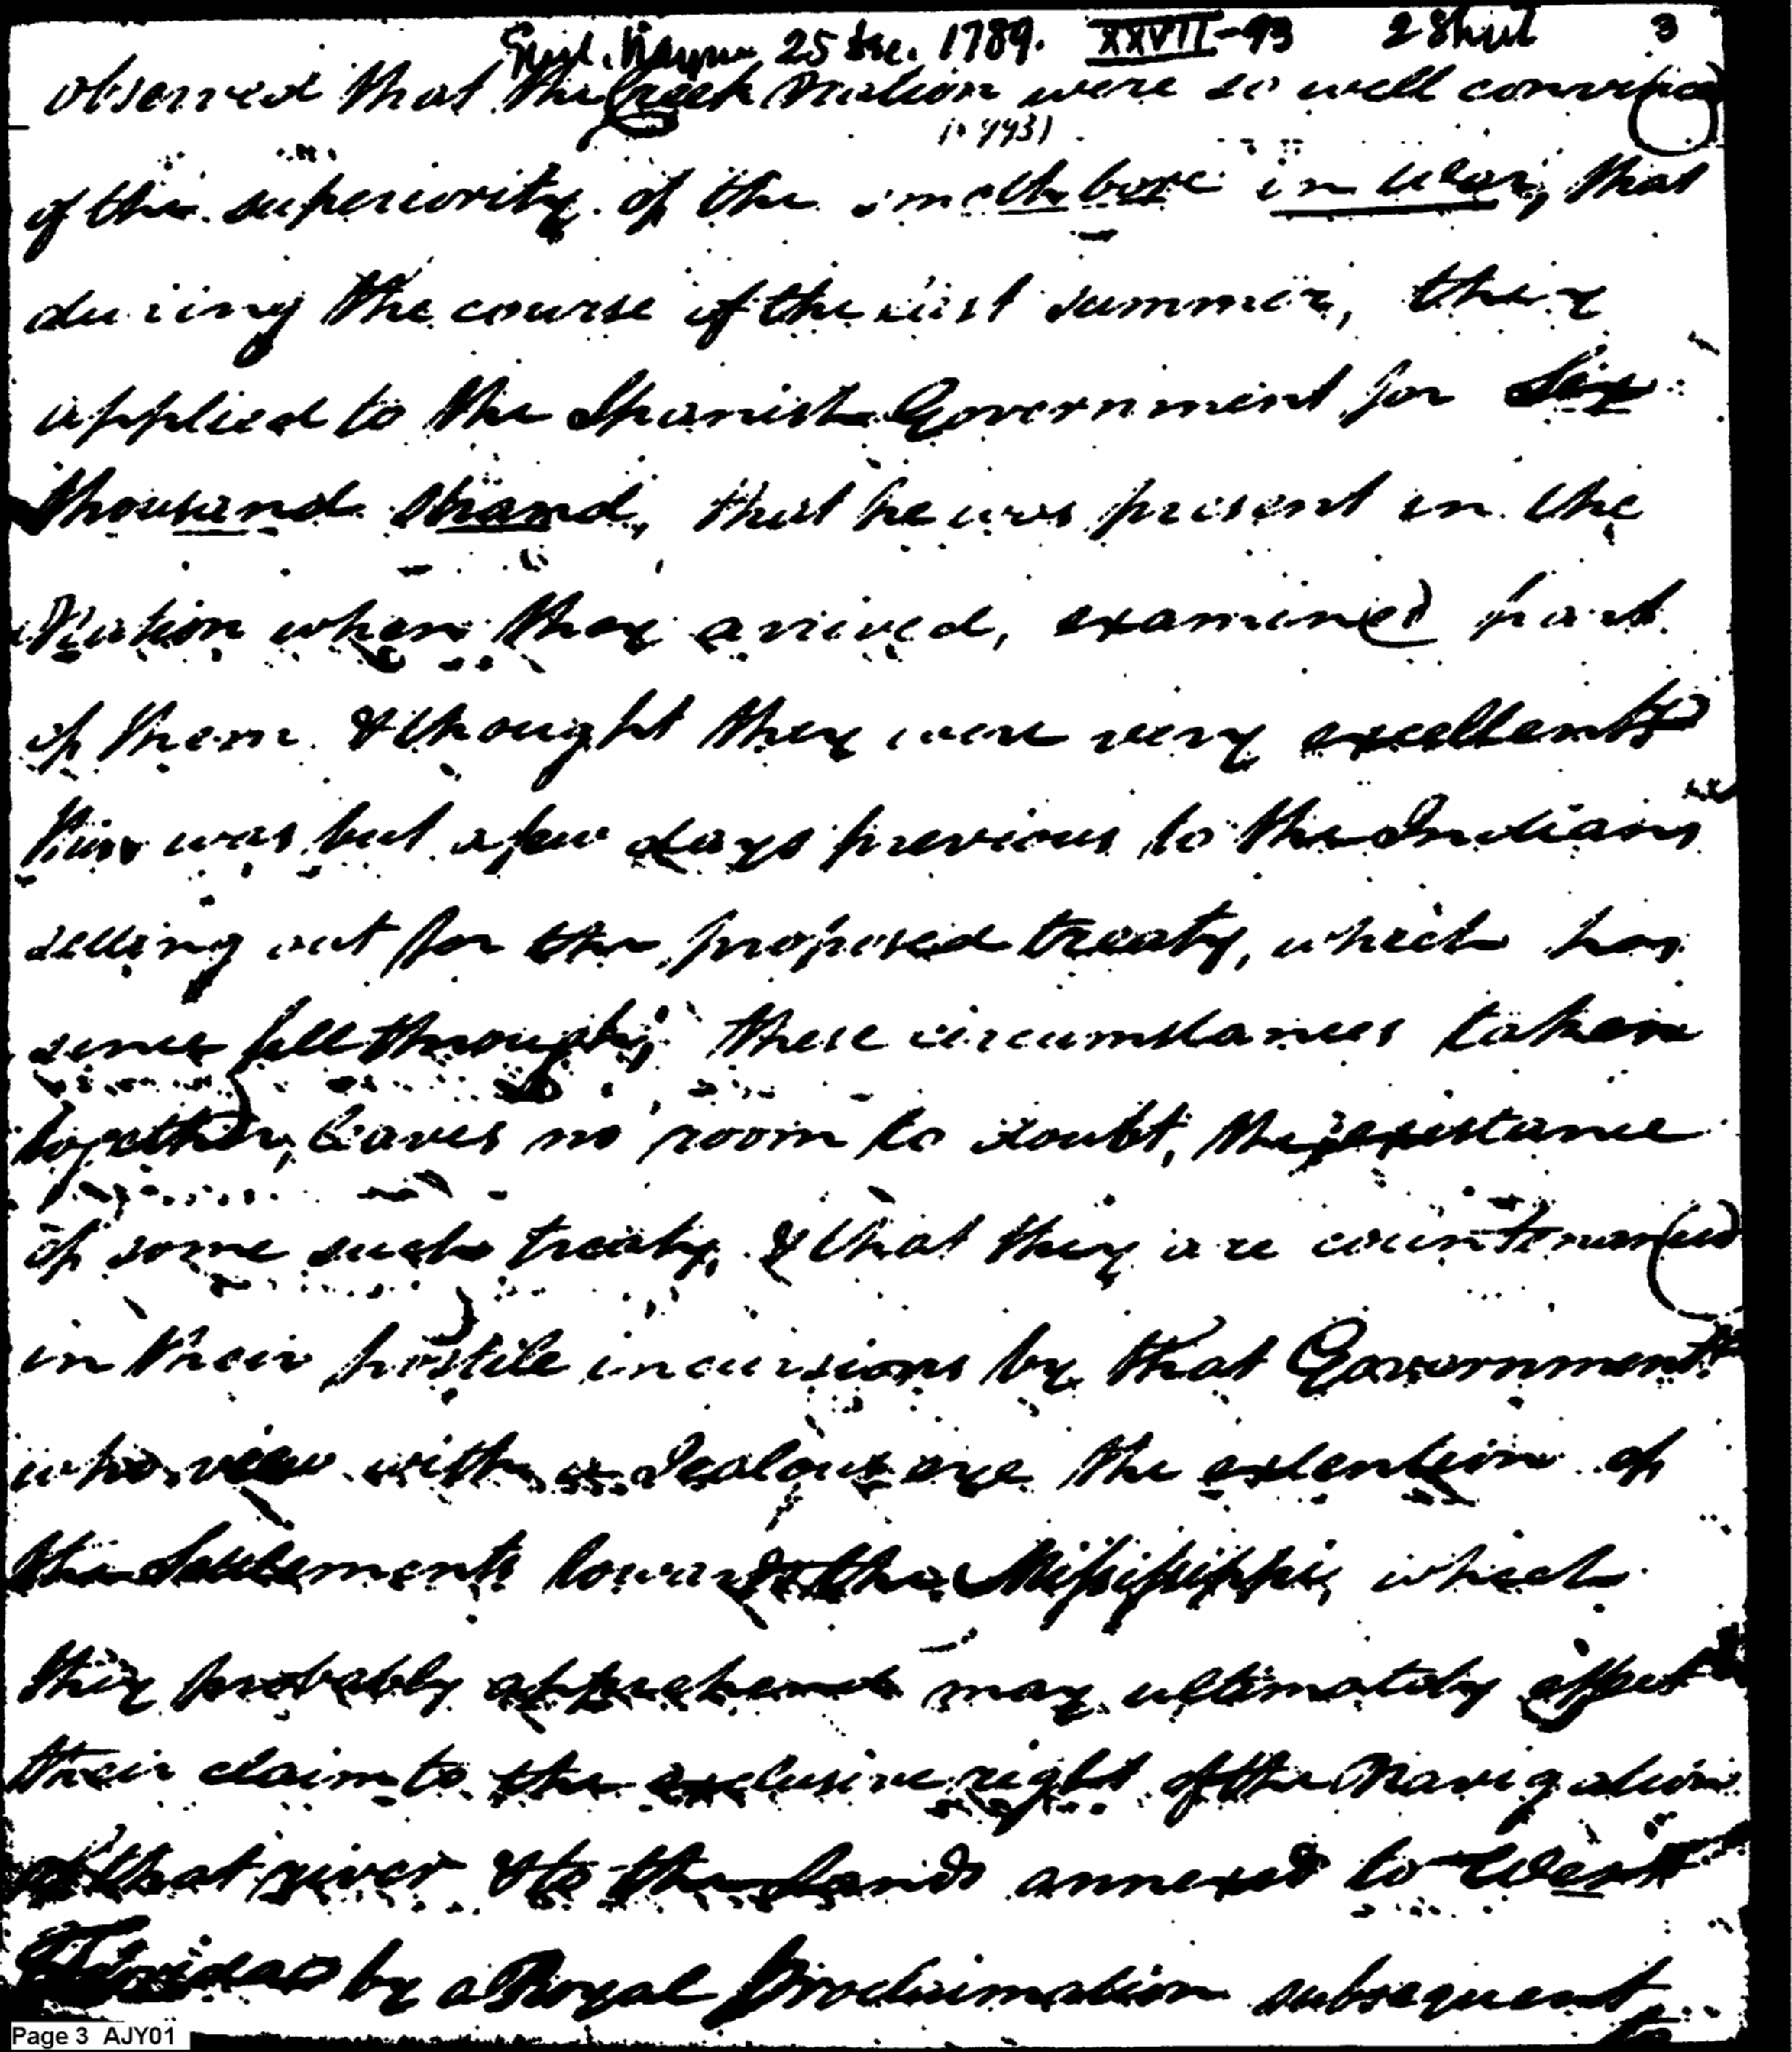 25 Dec. 1789. XXVII-93 3
observed that the Creek Nation were so well convinced
of the superiority of the small bore in War, that
during the course of the last summer, they
applied to the Spanish Government for Six
thousand Stand, that he was present in the
Nation when they arrived, examined part
of them & thought they were very excellent,
this was but a few days previous to the Indians
setting out for the proposed treaty, which has
since fell through; these circumstances taken
together, leaves no room to doubt, the existance
of some such treaty, & that they are countenanced
in their hostile incursions by that Government
who view with a Jealous eye the extention of
the Settlements towards the Mississippi, which
they probably apprehend may ultimately effect
their claim to the exclusive right of the Navigation
of that river & to the Lands annexed to West
Florida by a Royal Proclaimation subsequent
to
Page 3 AJY01